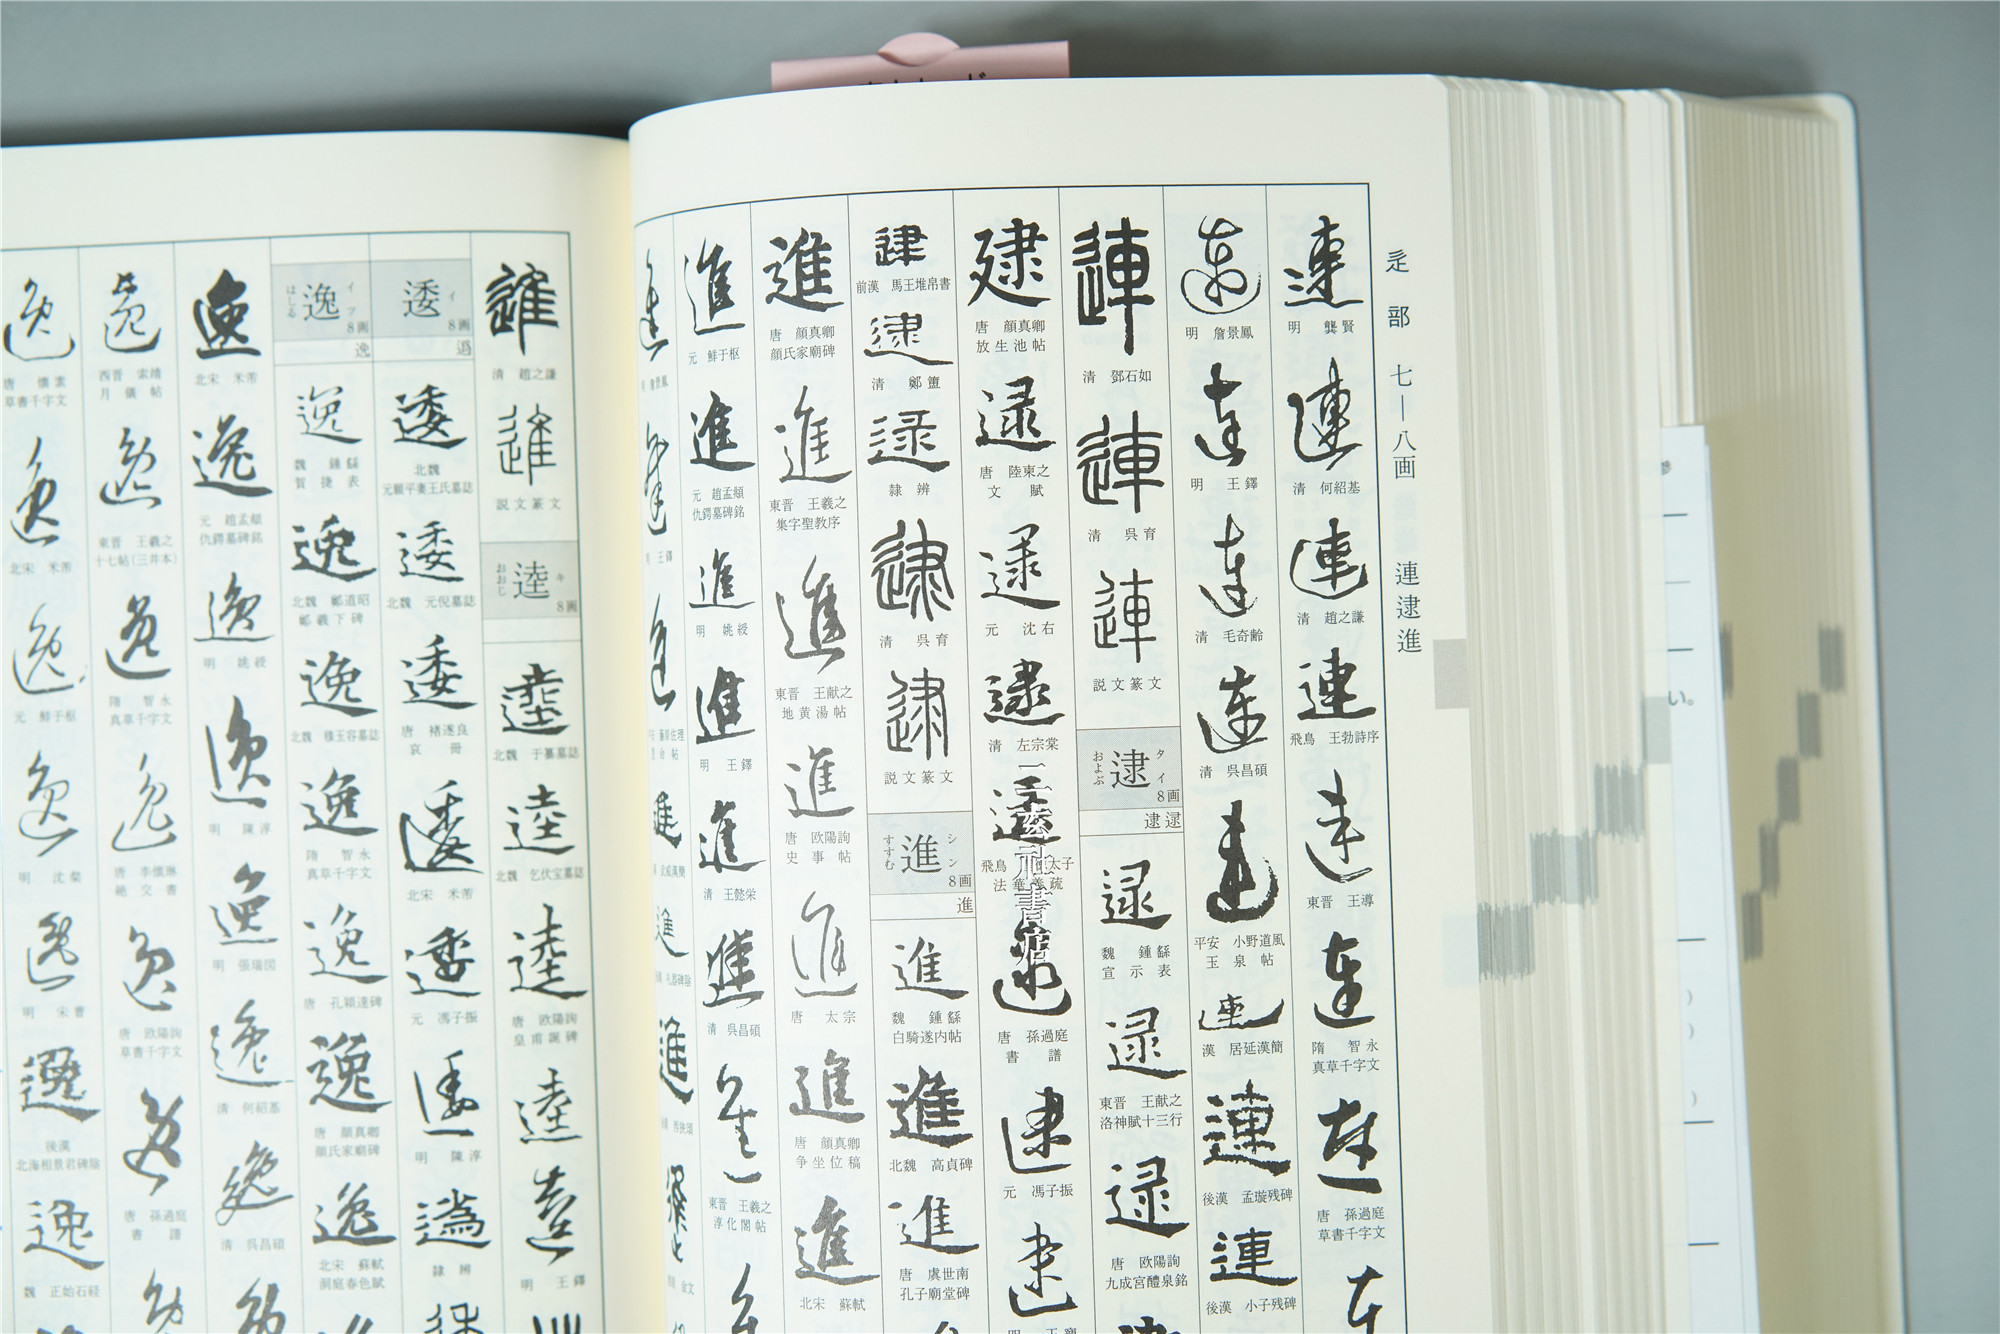 辵部 七—八画 連逮進
連
明 龔賢
連
清 何紹基
連
清 趙之謙
連
飛鳥 王勃詩序
連
東晋 王導
連
隋 智永
真草千字文
連
唐 孫過庭
草書千字文
連
明 詹景鳳
連
明 王鐸
連
清 毛奇齢
連
清 呉昌碩
連
平安 小野道風
玉泉帖
連
漢 居延漢簡
連
後漢 孟璇残碑
連
後漢 小子残碑
連
清 鄧石如
連
清 呉育
連
説文篆文
逮
タイ
およぶ
8画
逮
魏 鍾繇
宣示表
逮
東晋 王献之
洛神賦十三行
逮
唐 欧陽詢
九成宮醴泉銘
逮
唐 顔真卿
放生池帖
逮
唐 陸柬之
文賦
逮
元 沈右
逮
清 左宗棠
逮
法華義疏
逮
唐 孫過庭
書譜
逮
元 馮子振
逮
逮
前漢 馬王堆帛書
逮
清 鄭簠
逮
隷辨
逮
清 呉育
逮
説文篆文
進
シン
すすむ
8画
進
進
魏 鍾繇
白騎遂内帖
進
北魏 高貞碑
進
唐 虞世南
孔子廟堂碑
進
唐 顔真卿
顔氏家廟碑
進
東晋 王羲之
集字聖教序
進
東晋 王献之
地黄湯帖
進
唐 欧陽詢
史事帖
進
唐 太宗
進
唐 顔真卿
争坐位稿
進
北宋 蘇軾
進
元 鮮于枢
進
元 趙孟頫
仇鍔墓碑銘
進
明 姚綬
進
明 王鐸
進
清 王懿栄
進
清 呉昌碩
進
東晋 王羲之
淳化閣帖
進
清 趙之謙
進
説文篆文
逵
キ
おおじ
8画
逵
北魏 于纂墓誌
逵
北魏 乞伏宝墓誌
逵
唐 欧陽詢
皇甫誕碑
逵
逵
明 王鐸
逶
イ
8画
逶
北魏
元願平妻王氏墓誌
逶
北魏 元倪墓誌
逶
唐 褚遂良
哀冊
逶
北宋 米芾
逶
元 馮子振
逶
明 陳淳
逶
隷辨
逸
イツ
はしる
8画
逸
逸
魏 鍾繇
賀捷表
逸
北魏 鄭道昭
鄭羲下碑
逸
北魏 穆玉容墓誌
逸
隋 智永
真草千字文
逸
唐 孔穎達碑
逸
唐 顔真卿
顔氏家廟碑
逸
北宋 蘇軾
洞庭春色賦
逸
北宋 米芾
逸
元 趙孟頫
仇鍔墓碑銘
逸
明 姚綬
逸
明 陳淳
逸
明 張瑞図
逸
清 何紹基
逸
清 呉昌碩
逸
西晋 索靖
月儀帖
逸
東晋 王羲之
十七帖(三井本)
逸
隋 智永
真草千字文
逸
唐 李懐琳
絶交書
逸
唐 欧陽詢
草書千字文
逸
唐 孫過庭
書譜
逸
唐 懐素
草書千字文
逸
北宋 米芾
逸
元 鮮于枢
逸
明 沈粲
逸
明 宋曹
逸
後漢
北海相景君碑陰
逸
魏 正始石経
二玄社書店
い。